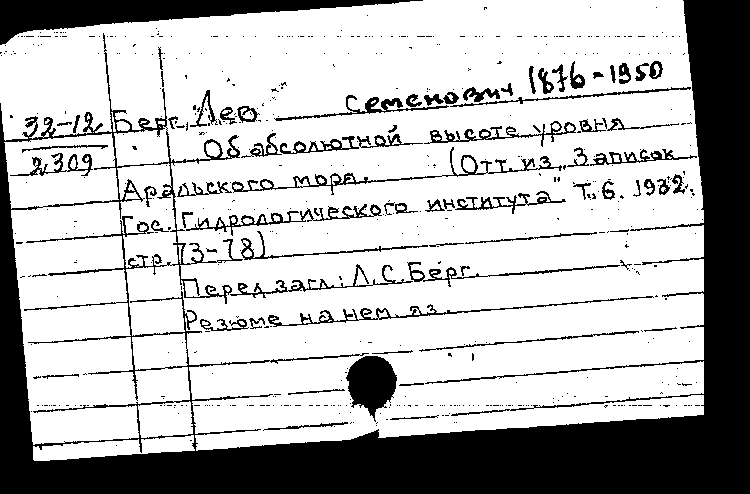 32-12
2309
Берг, Лев Семенович, 1876-1950
Об абсолютной высоте уровня
Аральского моря. (Отт. из „Записок
Гос. Гидрологического института". Т. 6. 1932.
стр. 73-78)
Перед загл.: Л.С. Берг.
Резюме на нем. яз.